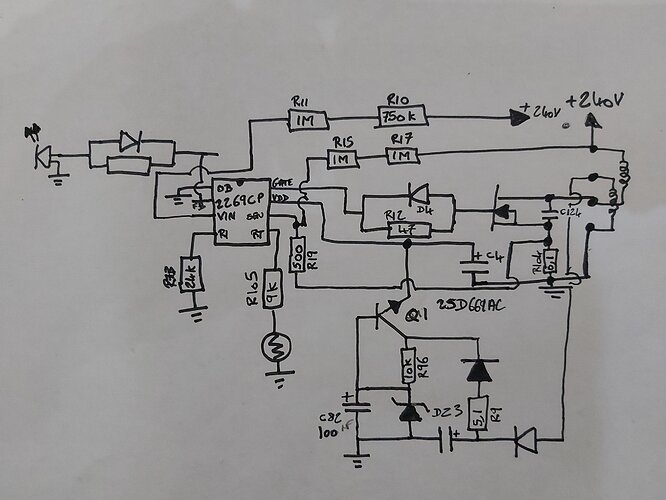 R11
1M
R10
750k
+240V
+240V
R15
1M
R17
1M
OB
2269CP
VIN
SEN
RI
RT
GATE
VDD
D4
R12
47
C124
R104
0,1
500
R19
24k
R105
9k
+
C4
2SD669AC
Q1
10k
R96
+
C82
100
DZ3
5,1
R9
+